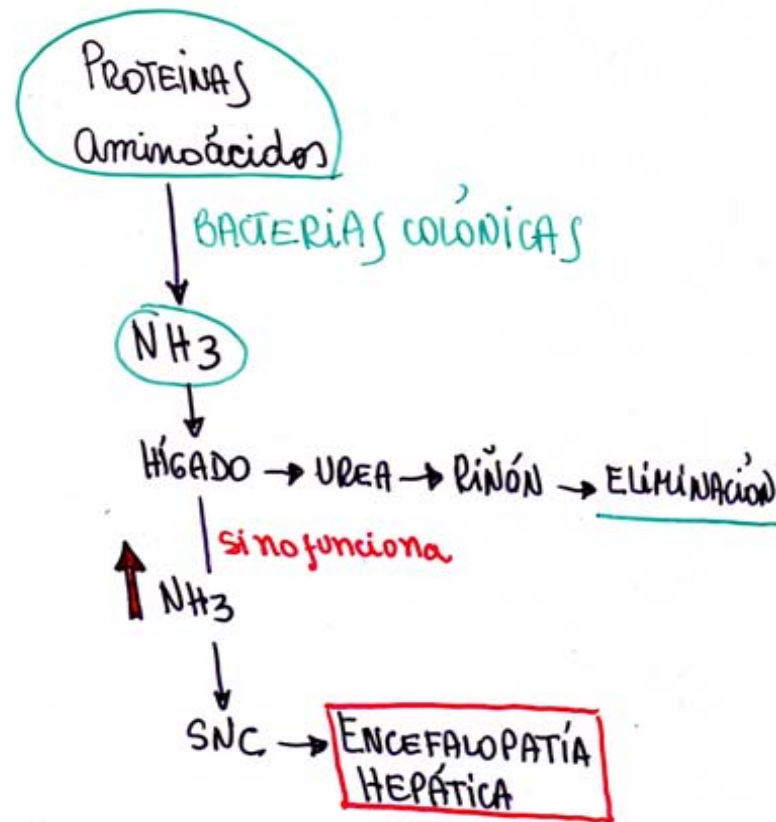 PROTEINAS
aminoácidos
BACTERIAS COLÓNICAS
NH3
HÍGADO → UREA → RIÑÓN → ELIMINACIÓN
si no funciona
↑ NH3
SNC → ENCEFALOPATÍA
HEPÁTICA